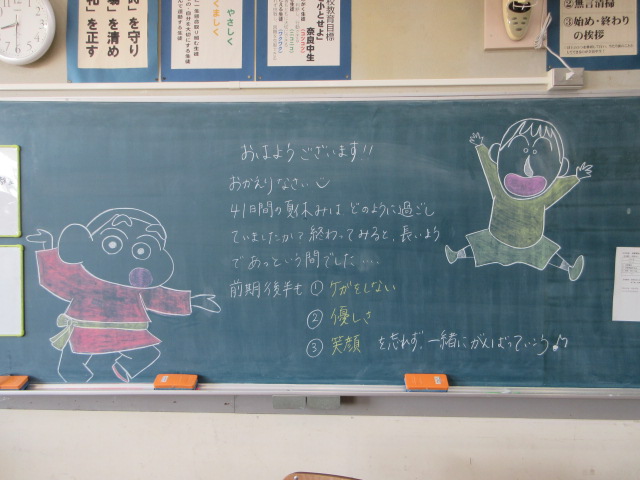 を守り
を清め
を正す
やさしく
学校教育目標
小とせよ」
奈良中生
②無言清掃
③始め・終わり
の挨拶
おはようございます!!
おかえりなさい
41日間の夏休みは どのように過ごし
ていましたか?終わってみると、長いよう
であっという間でした…
前期後半も ① ケガをしない
② 優しさ
③ 笑顔 を忘れず、一緒にがんばっていこう♪